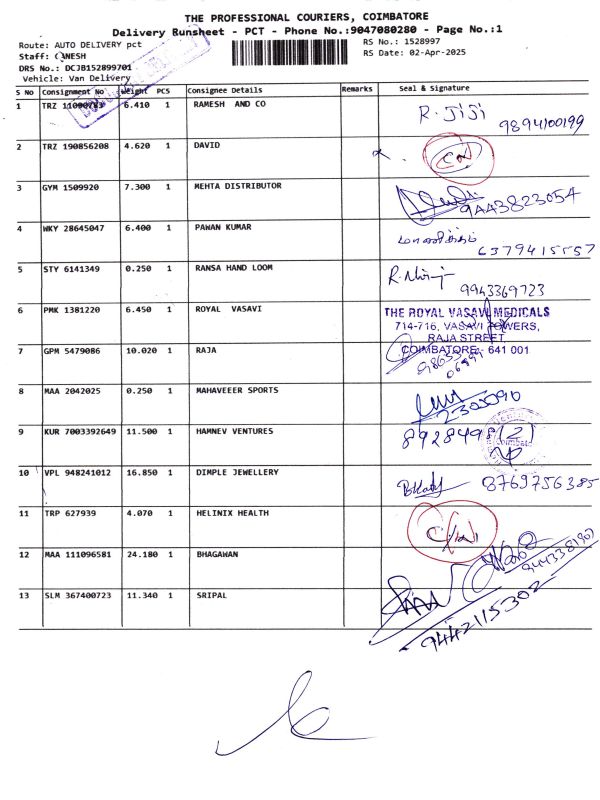 THE PROFESSIONAL COURIERS, COIMBATORE
Delivery Runsheet - PCT - Phone No.:9047080280 - Page No.:1
Route: AUTO DELIVERY pct
RS No.: 1528997
Staff: GANESH
RS Date: 02-Apr-2025
DRS No.: DCJB152899701
Vehicle: Van Delivery
S No Consignment No Weight PCS Consignee Details Remarks Seal & Signature
1 TRZ 6.410 1 RAMESH AND CO R. JiJi
9894100199
2 TRZ 190856208 4.620 1 DAVID
3 GYM 1509920 7.300 1 MEHTA DISTRIBUTOR
9443823054
4 WKY 28645047 6.400 1 PAWAN KUMAR மாணிக்கம்
6379415557
5 STY 6141349 0.250 1 RANSA HAND LOOM
9943369723
6 PMK 1381220 6.450 1 ROYAL VASAVI THE ROYAL VASAVI MEDICALS
714-716, VASAVI TOWERS,
RAJA STREET
7 GPM 5479086 10.020 1 RAJA COIMBATORE - 641 001
8 MAA 2042025 0.250 1 MAHAVEEER SPORTS
9 KUR 7003392649 11.500 1 HAMNEV VENTURES
10 VPL 948241012 16.850 1 DIMPLE JEWELLERY 8769756385
11 TRP 627939 4.070 1 HELINIX HEALTH
12 MAA 111096581 24.180 1 BHAGAWAN
13 SLM 367400723 11.340 1 SRIPAL
9442115302